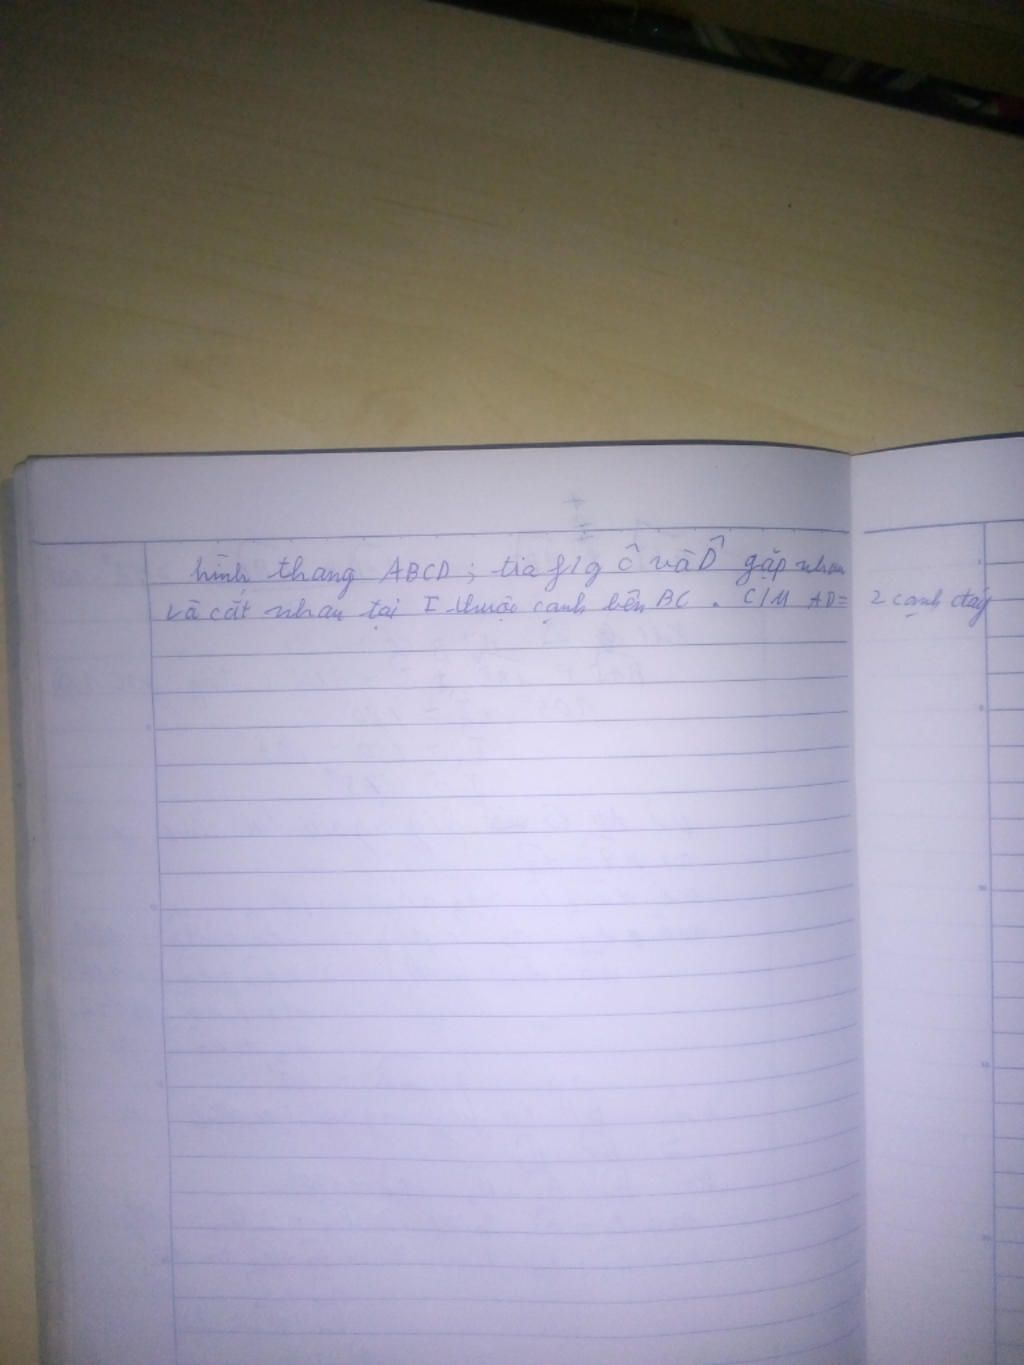 hình thang ABCD ; tia f/g Ĉ và D̂ gặp nhau
và cắt nhau tại I thuộc cạnh bên BC . C/M AD = 2 cạnh đáy